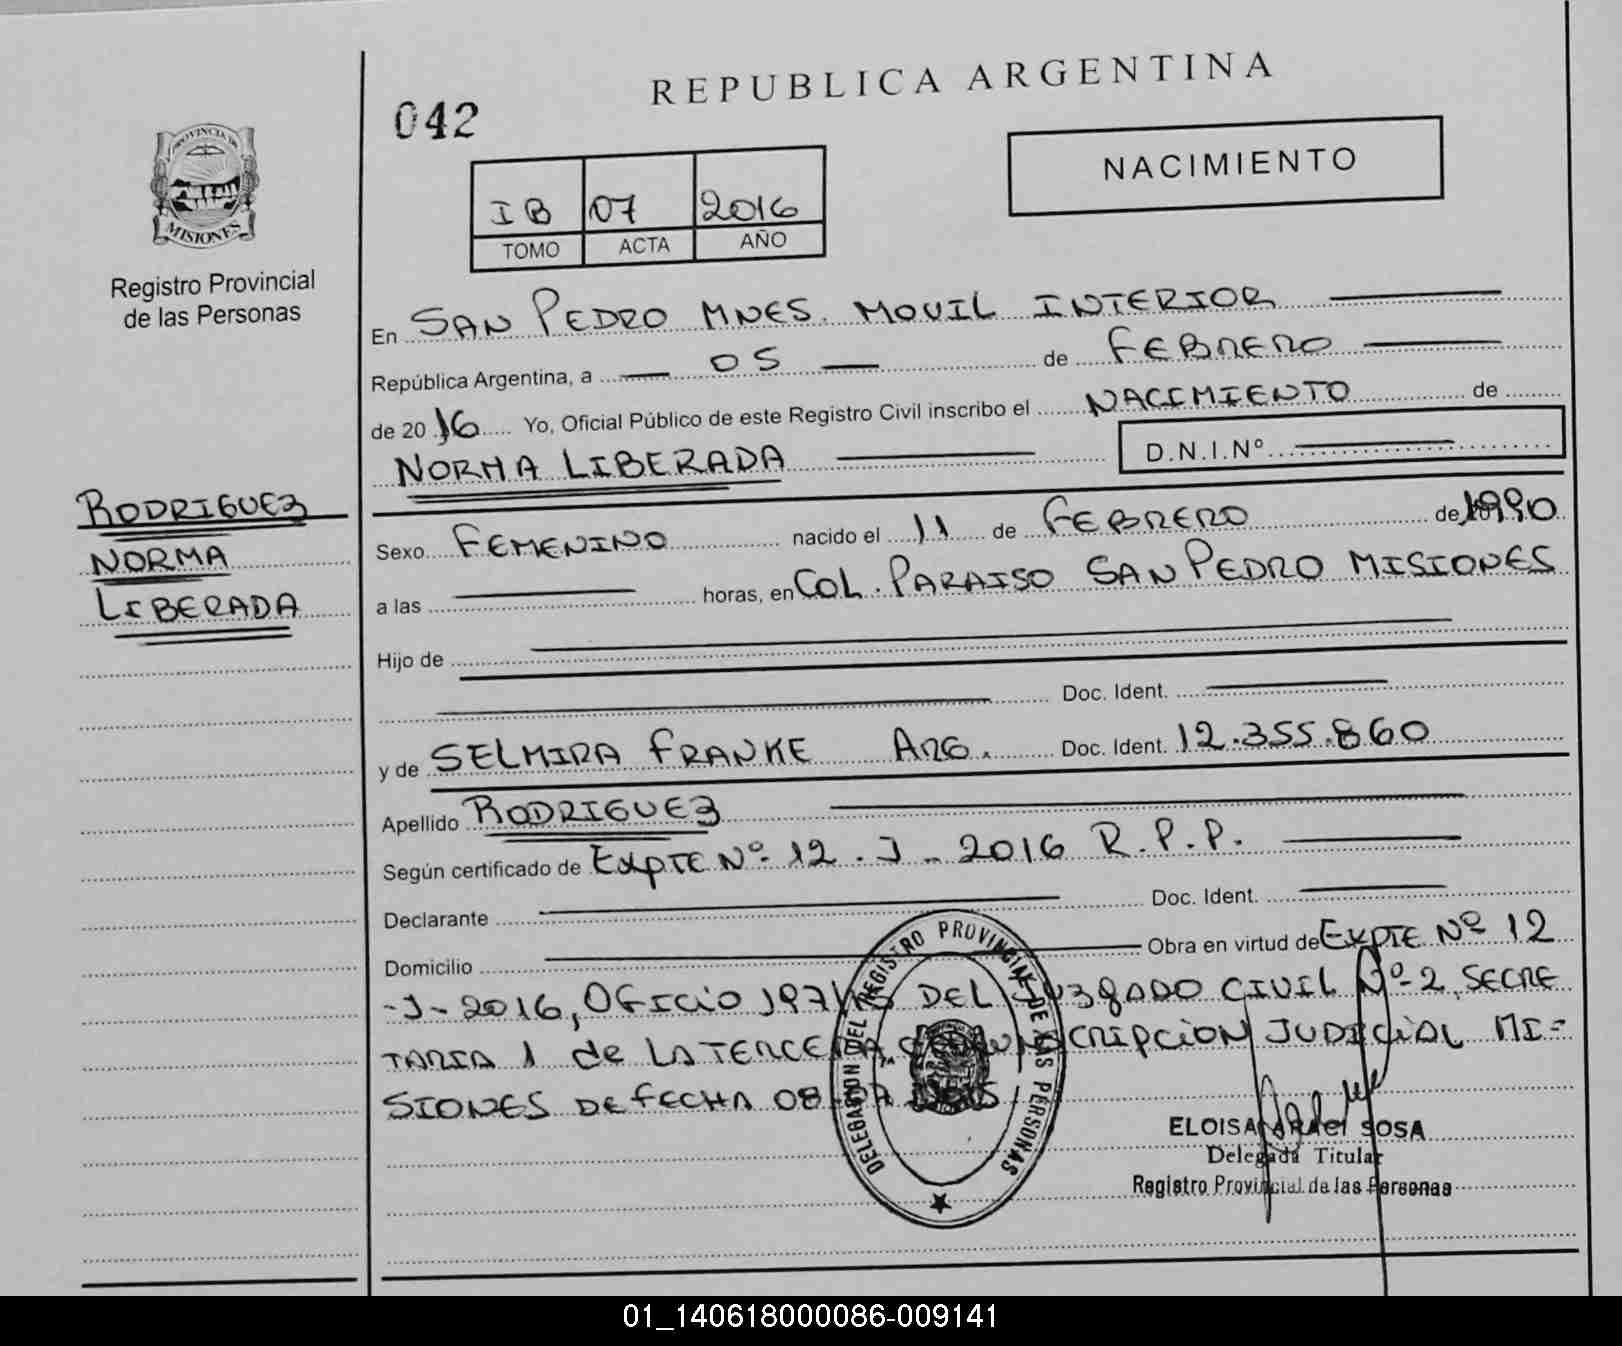 REPUBLICA ARGENTINA
042
NACIMIENTO
PROVINCIA DE
MISIONES
Registro Provincial
de las Personas
IB 07 2016
TOMO ACTA AÑO
En SAN PEDRO MNES. MOVIL INTERIOR
República Argentina, a 05 de FEBRERO
de 2016 Yo, Oficial Público de este Registro Civil inscribo el NACIMIENTO de
NORMA LIBERADA D.N.I.Nº
RODRIGUEZ
NORMA
LIBERADA
Sexo FEMENINO nacido el 11 de FEBRERO de 1990
a las horas, en COL. PARAISO SAN PEDRO MISIONES
Hijo de
Doc. Ident.
y de SELMIRA FRANKE ARG. Doc. Ident. 12.355.860
Apellido RODRIGUEZ
Según certificado de EXPTE Nº 12.J-2016 R.P.P.
Declarante Doc. Ident.
Domicilio Obra en virtud de EXPTE Nº 12
-J-2016, OFICIO DEL JUZGADO CIVIL Nº-2, SECRE
TARIA 1 de LA TERCERA CIRCUNSCRIPCION JUDICIAL MI=
SIONES DE FECHA 08
DELEGACION DEL REGISTRO PROVINCIAL DE LAS PERSONAS
ELOISA SOSA
Delegada Titular
Registro Provincial de las Personas
01_140618000086-009141